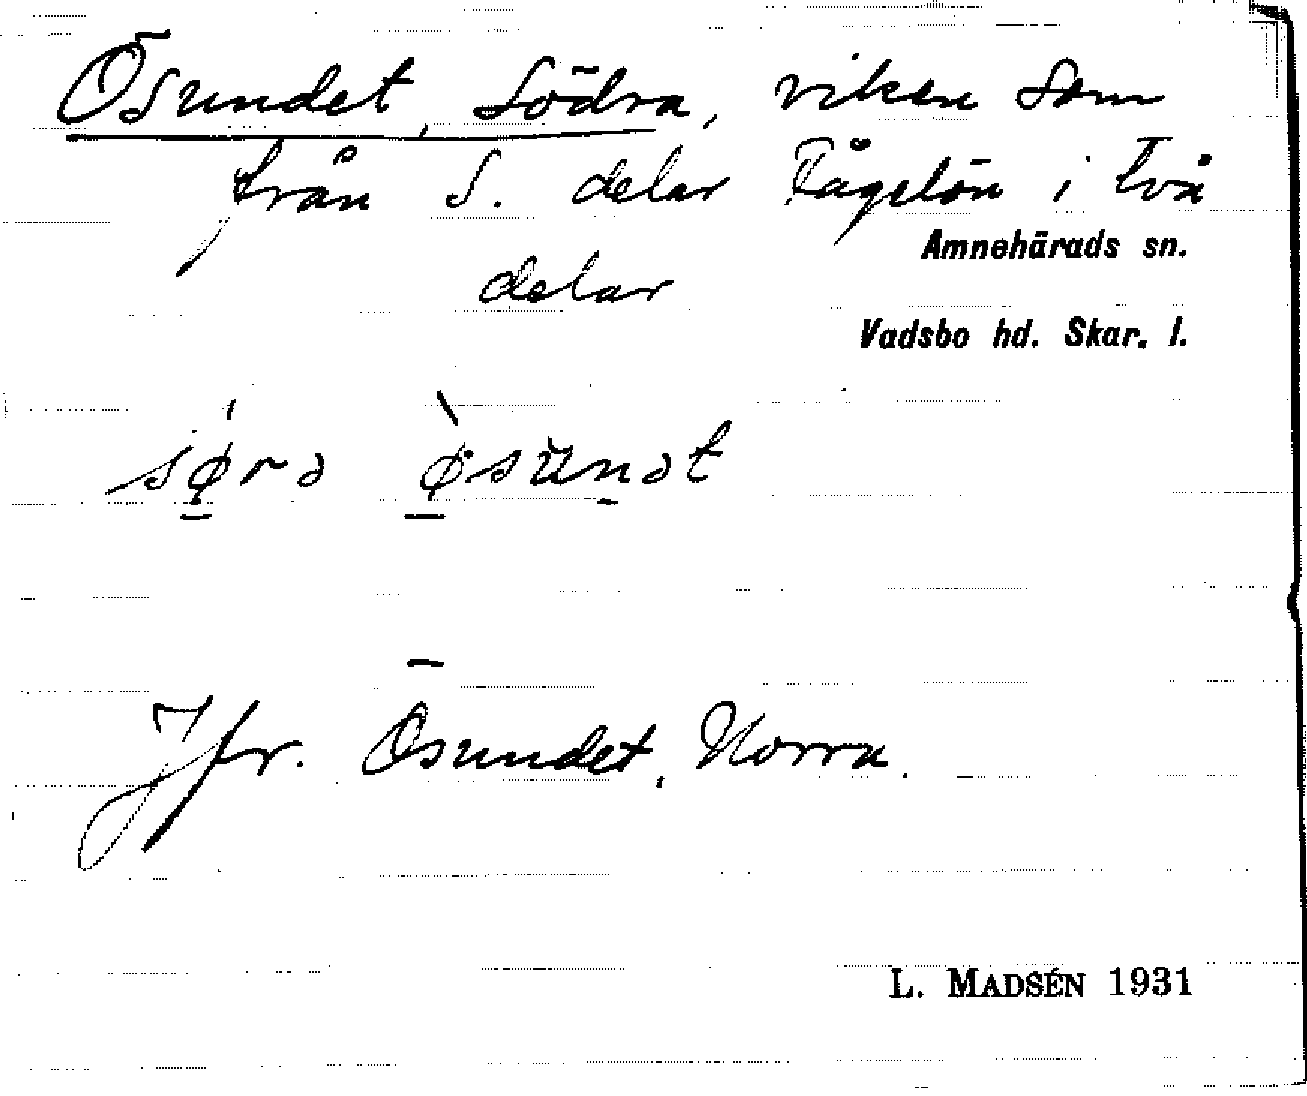 Ösundet, Södra, viken som
från S. delar Fågelön i två
Amnehärads sn.
delar
Vadsbo hd. Skar. l.
sø̱rə ø̱sŭn̠ət
Jfr. Ösundet, Norra.
L. MADSÉN 1931